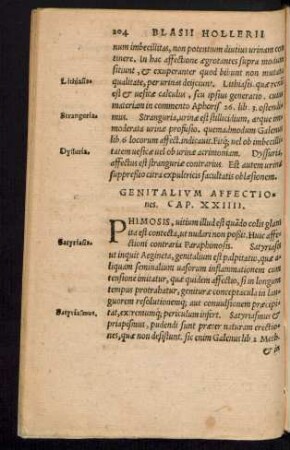 204 BLASII HOLLERII
num imbecillitas, non potentium diutius urinam con
tinere, in hac affectione ægrotantes supra modum
sitiunt, & exuperanter quod bibunt non mutata
Lithiasis.
qualitate, per urinas deijciunt. Lithiasis, quæ renū
est & uesicæ calculus, seu ipsius generatio, cuius
materiam in commento Aphoris 26. lib. 3. ostendi
Stranguria.
mus. Stranguria, urinæ est stillicidium, atque im=
moderata urinæ profusio, quemadmodum Galenus
lib. 6 locorum affect. indicauit. Fitq; uel ob imbecilli
Dysuria.
tatem uesicæ uel ob urinæ acrimoniam. Dyssuria,
affectus est stranguriæ contrarius. Est autem urinæ
suppressio citra expultricis facultatis oblæsionem.
GENITALIVM AFFECTIO=
nes. CAP. XXIIII.
PHIMOSIS, uitium illud est quãdo colis glans
ita est contecta, ut nudari non possit. Huic affe=
Satyriasis.
ctioni contraria Paraphimosis. Satyriasis
ut inquit Aegineta, genitalium est palpitatio, quæ ali
quam seminalium uasorum inflammationem cum
tensione imitatur, quæ quidem affectio, si in longum
tempus protrahatur, genituræ conceptacula in lan=
guorem resolutionemq; aut conuulsionem præcipi=
Satyriasmus.
tat, extremumq; periculum infert. Satyriasmus &
priapismus, pudendi sunt præter naturam erectio=
nes, quæ non desistunt, sic enim Galenus lib 2 Meth.
& in